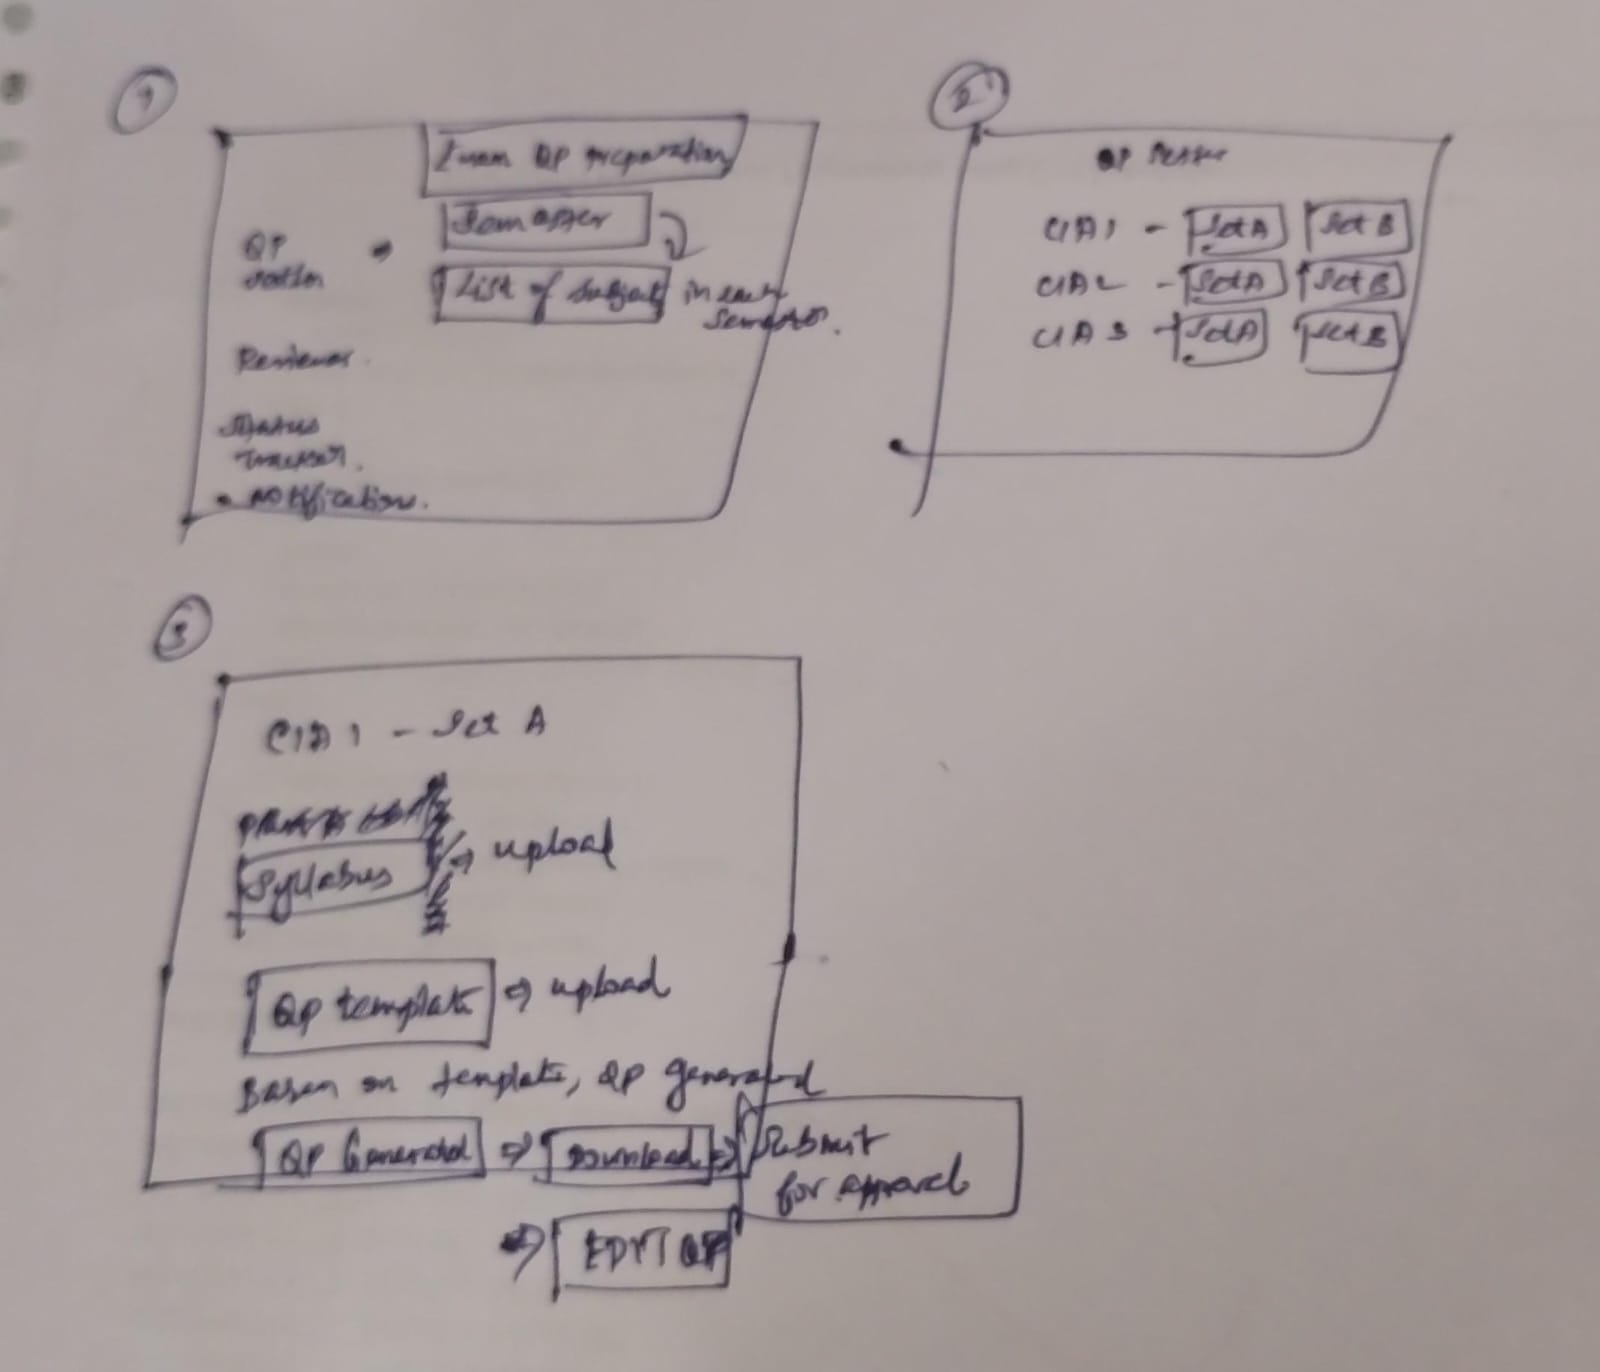 1
Exam QP preparation
Semester
QP
List of Subject in each
Semester.
Reviewer.
Status
Tracker.
• Notification.
2
QP Setter
CIA1 - Set A Set B
CIA2 - Set A Set B
CIA3 - Set A Set B
3
CIA 1 - Set A
Syllabus ⇒ upload
QP template ⇒ upload
Based on template, QP generated
QP Generated ⇒ Download ⇒ Submit
for approval
⇒ EDIT QP